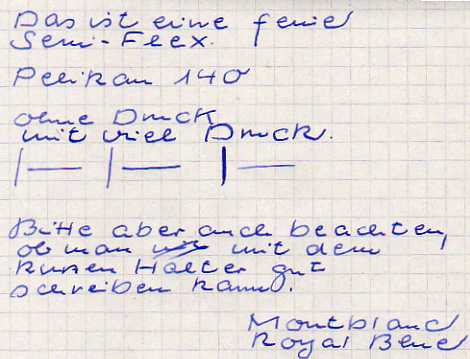 Das ist eine feine
Semi-Flex.
Pelikan 140
ohne Druck
mit viel Druck.
Bitte aber auch beachten,
ob man mit dem
kurzen Halter gut
schreiben kann.
Montblanc
Royal Blue